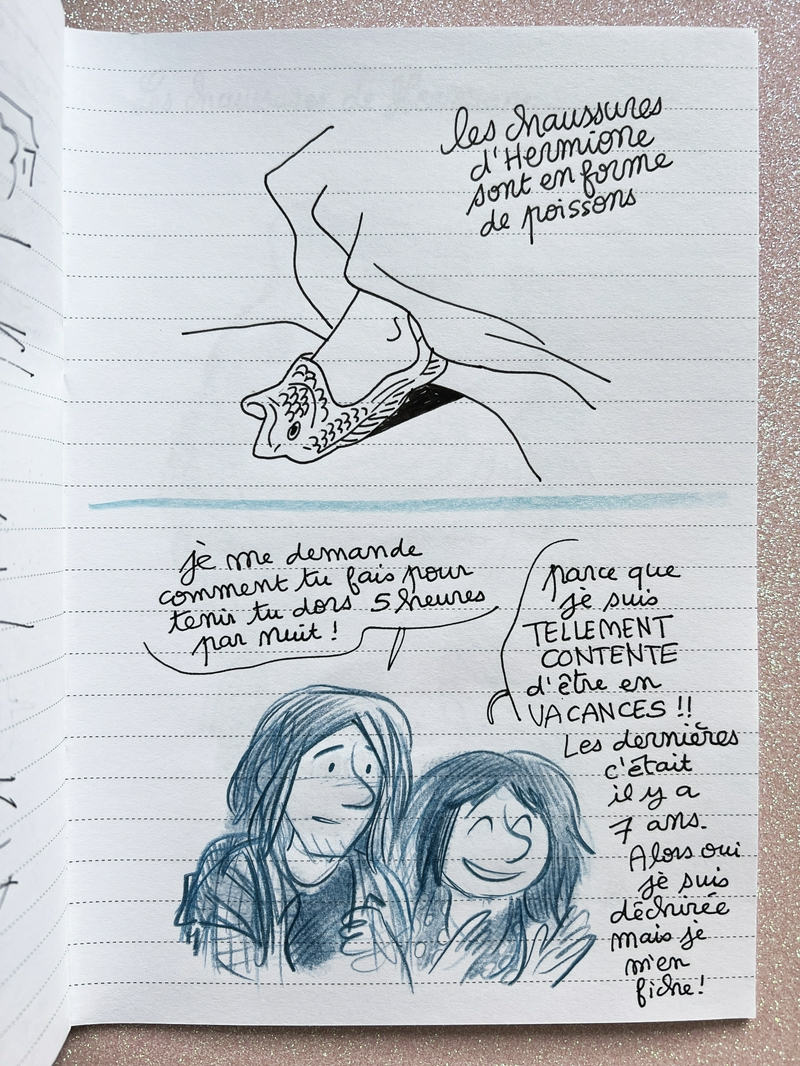 les chaussures
d'Hermione
sont en forme
de poissons
je me demande
comment tu fais pour
tenir tu dors 5 heures
par nuit !
parce que
je suis
TELLEMENT
CONTENTE
d'être en
VACANCES !!
Les dernières
c'était
il y a
7 ans.
Alors oui
je suis
déchirée
mais je
m'en
fiche !